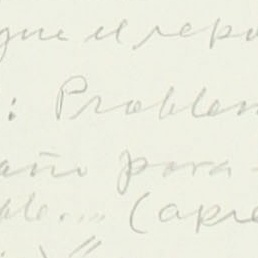 que el repo
: Problem
año para
ble... (apre